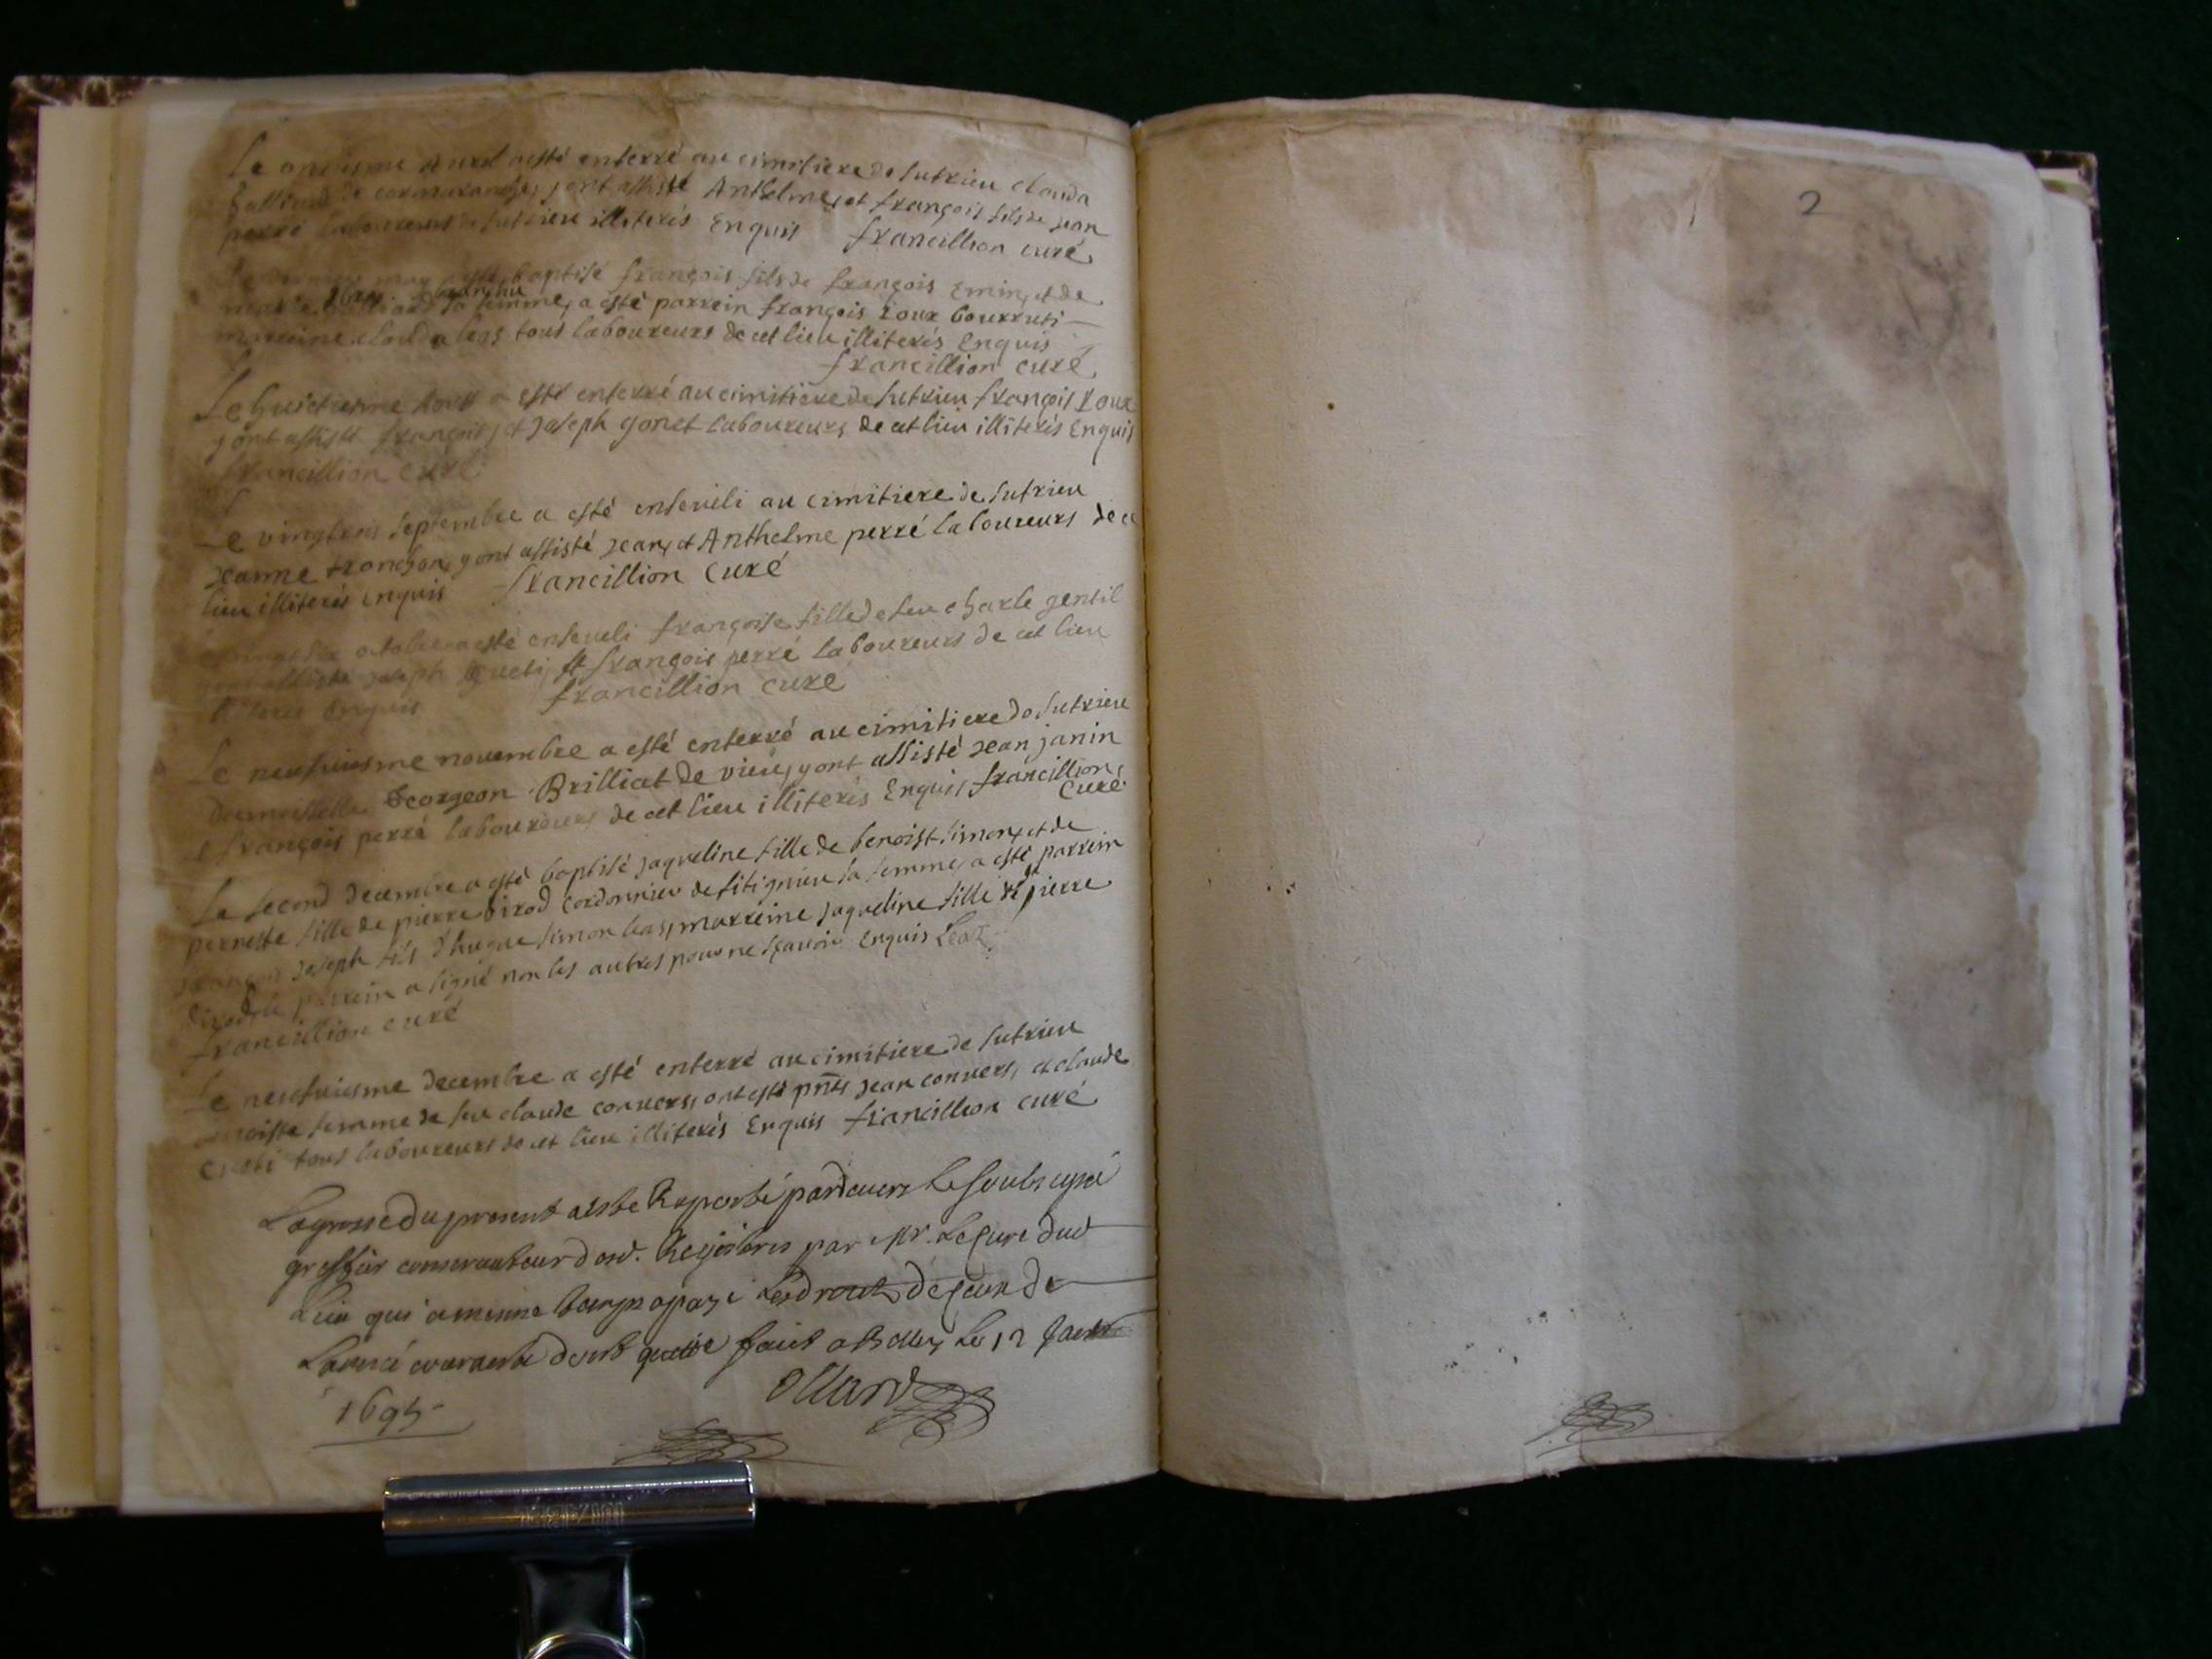 Le onziesme Avril a esté enterré au cimitiere de sutrieu clauda
de cormaranche, y ont assisté Anthelme, et françois fils de jean
perré laboureurs de sutrieu illiterés Enquis francillion curé
may a esté baptisé françois fils de françois Emin, et de
marie sa femme, a esté parrein françois roux bourruti
marreine clauda tous laboureurs de cet lieu illiterés Enquis
francillion curé
Le huictiesme Aoust a esté enterré au cimitiere de sutrieu françois roux
y ont assisté françois, et joseph gonet laboureurs de cet lieu illiterés Enquis
francillion curé
Le vingtrois septembre a esté enseueli au cimitiere de sutrieu
jeanne tronchon, y ont assisté jean, et Anthelme perré laboureurs de ce
lieu illiterés enquis francillion curé
octobre a esté enseueli françoise fille de feu charle gentil
y ont assisté joseph et françois perré laboureurs de cet lieu
illiterés Enquis francillion curé
Le neufuiesme nouembre a esté enterré au cimitiere de sutrieu
Damoiselle Georgeon Brilliat de vieu, y ont assisté jean janin
et françois perré laboureurs de cet lieu illiterés Enquis francillion
curé
Le second decembre a esté baptisé jaqueline fille de benoist simon, et de
pernette fille de pierre birod cordonnier de sitignieu sa femme, a esté parrein
françois joseph fils d'hugue simon bas, marreine jaqueline fille de pierre
birod, le parrein a signé non les autres pour ne sçauoir Enquis
francillion curé
Le neufuiesme decembre a esté enterré au cimitiere de sutrieu
benoiste femme de feu claude conuers, ont esté pnts jean conuers, et claude
tous laboureurs de cet lieu illiterés Enquis francillion curé
La grosse du present a este Raporté pardeuers le soubsigné
greffier conseruateur desd. Registres par Mr. le Curé dud
Lieu qui a mesme temps a payé Les droits de
L'année courante dont quitte faict a Belley Le 12
1695
Ollard
2